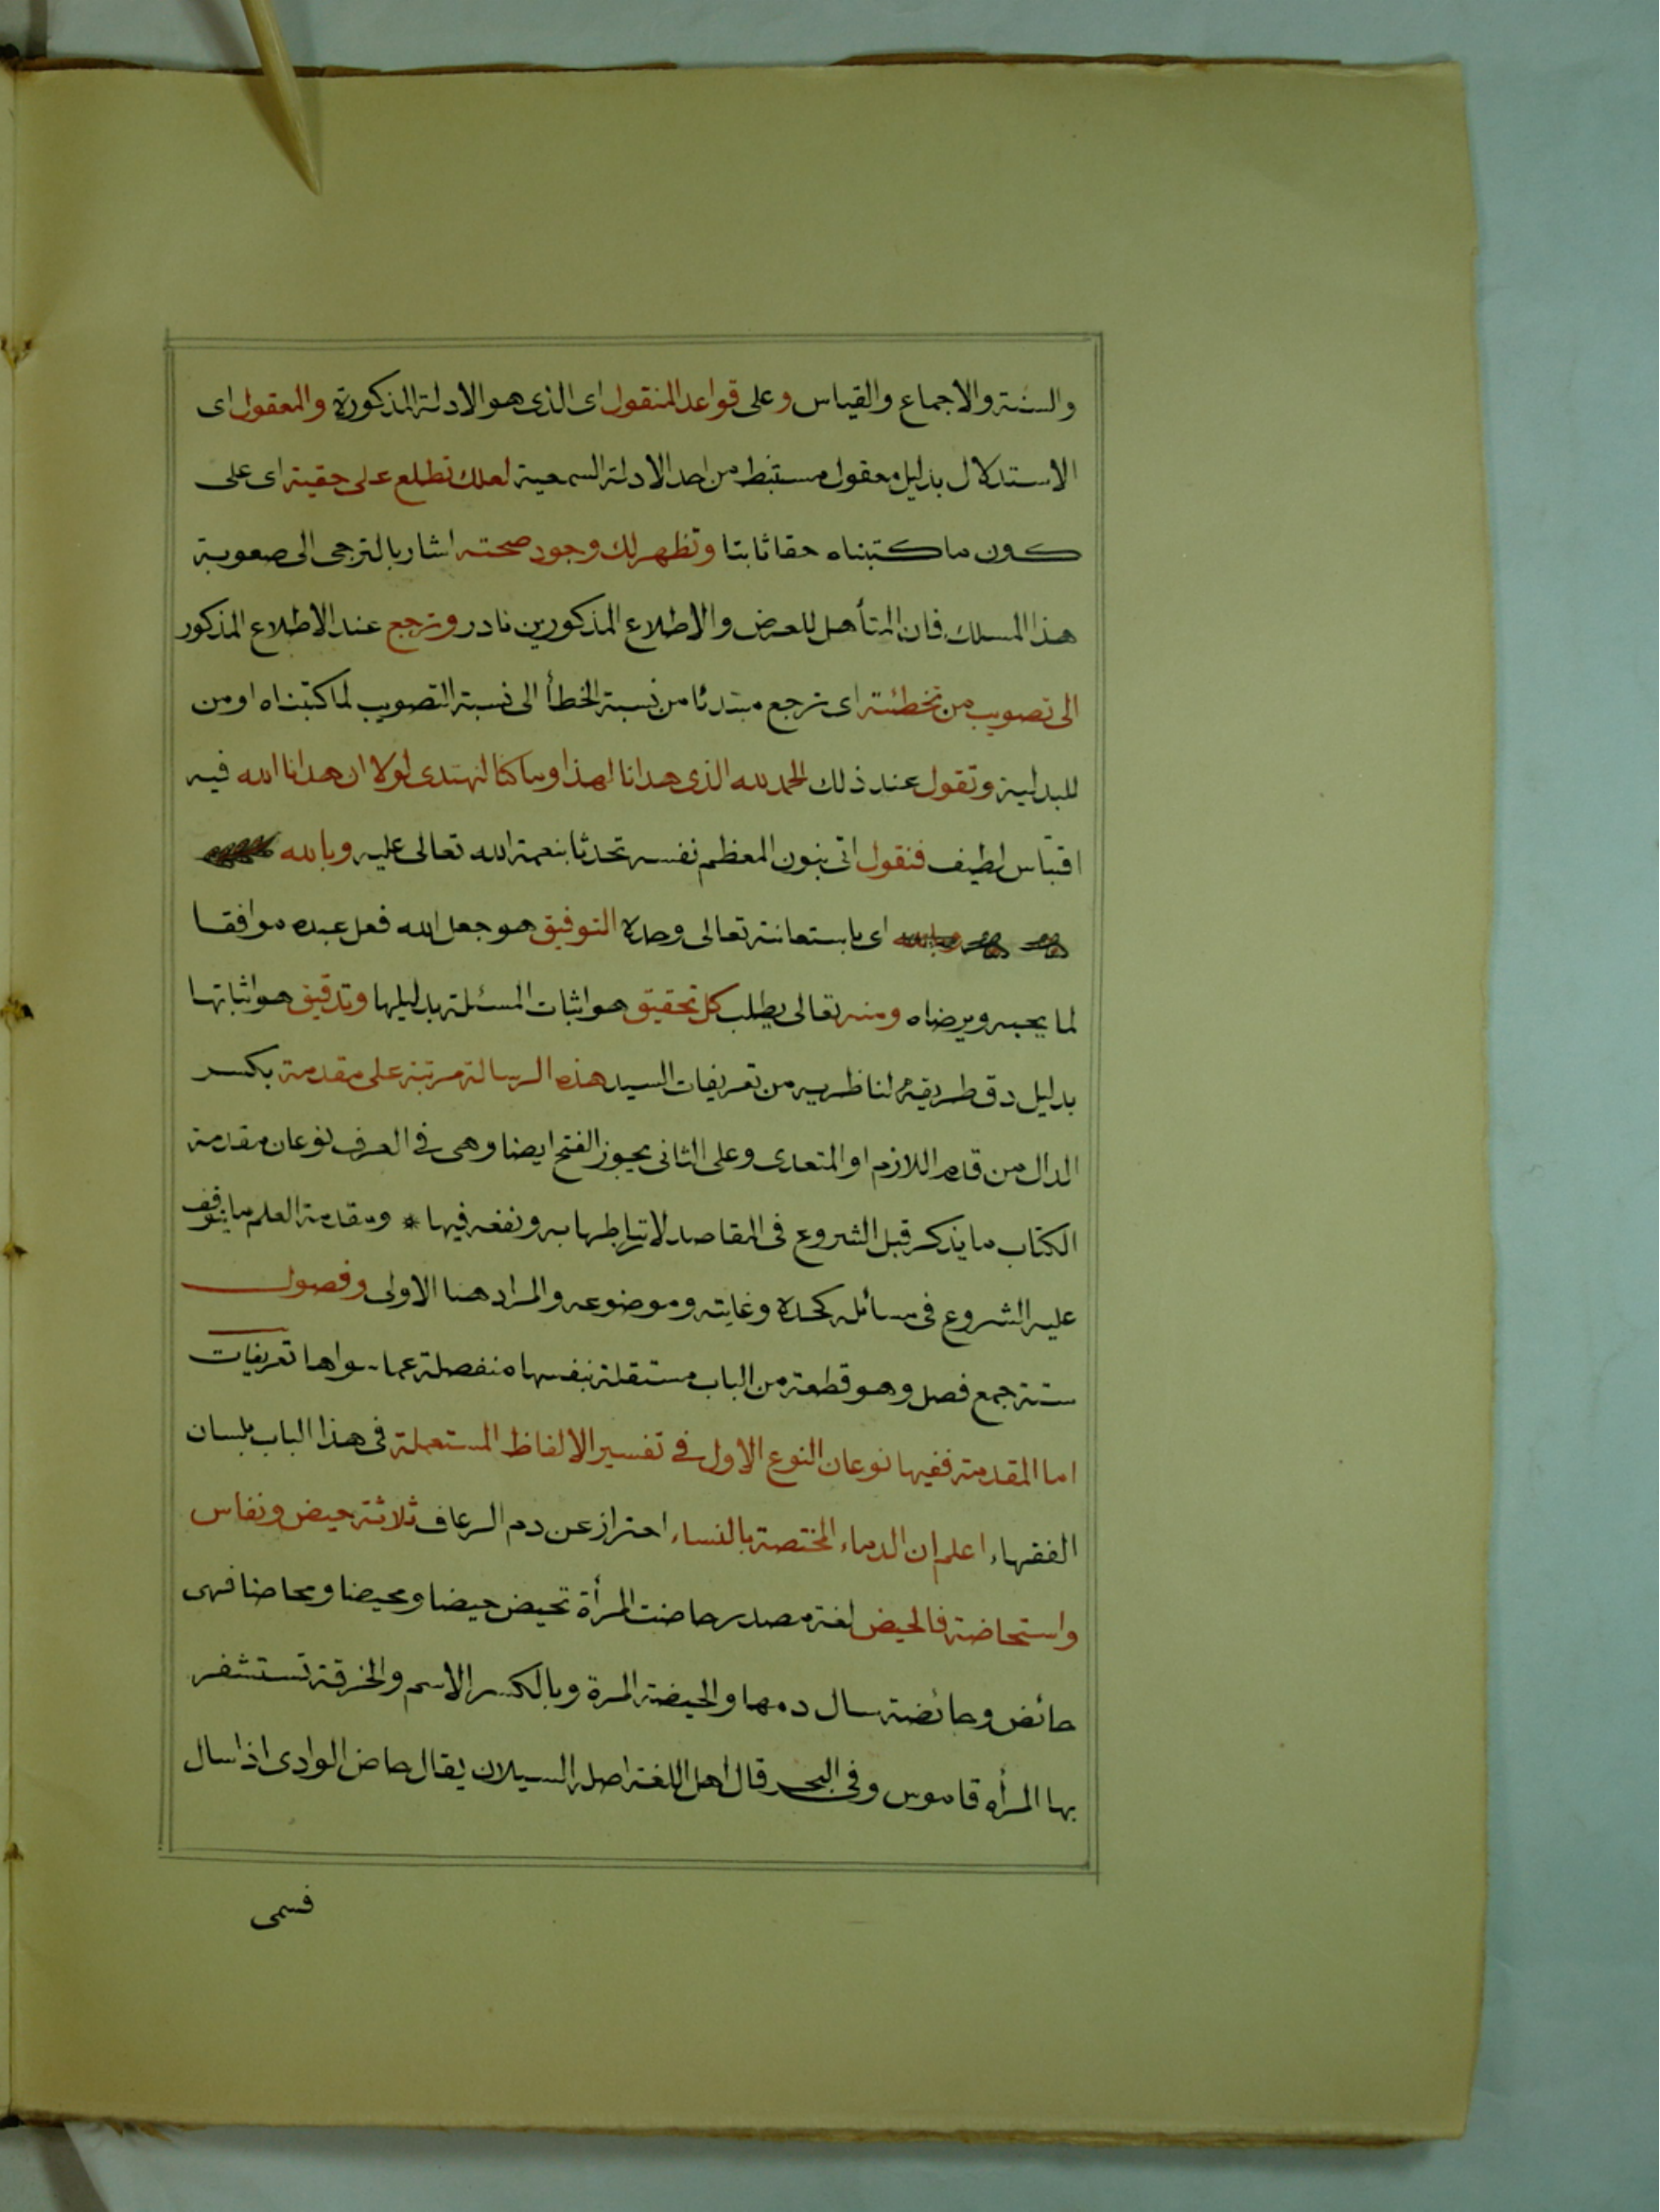 والسنة والاجماع والقياس وعلى قواعد المنقول اى الذى هو الادلة المذكورة والمعقول اى
الاستدلال بدليل معقول مستنبط من احد الادلة السمعية لعلك تطلع على حقية اى على
كون ما كتبناه حقا ثابتا وتظهر لك وجود صحته اشار بالترجى الى صعوبة
هذا المسلك فان المتأهل للعرض والاطلاع المذكورين نادر وترجع عند الاطلاع المذكور
الى تصويب من تخطئة اى ترجع مبتدئا من نسبة الخطأ الى نسبة التصويب لما كتبناه او من
للبدلية وتقول عند ذلك الحمد لله الذى هدانا لهذا وما كنا لنهتدى لولا ان هدانا الله فيه
اقتباس لطيف فنقول اتى بنون المعظم نفسه تحدثا بنعمة الله تعالى عليه وبالله
اى باستعانته تعالى وحده التوفيق هو جعل الله فعل عبده موافقا
لما يحبه ويرضاه ومنه تعالى يطلب كل تحقيق هو اثبات المسئلة بدليلها وتدقيق هو اثباتها
بدليل دق طريقه لناظريه من تعريفات السيد هذه الرسالة مرتبة على مقدمة بكسر
الدال من قدم اللازم او المتعدى وعلى الثانى يجوز الفتح ايضا وهى فى العرف نوعان مقدمة
الكتاب ما يذكر قبل الشروع فى المقاصد لارتباطها به ونفعه فيها * ومقدمة العلم ما يتوقف
عليه الشروع فى مسائله كحده وغايته وموضوعه والمراد هنا الاولى وفصول
ستة جمع فصل وهو قطعة من الباب مستقلة بنفسها منفصلة عما سواها تعريفات
اما المقدمة ففيها نوعان النوع الاول فى تفسير الالفاظ المستعملة فى هذا الباب بلسان
الفقهاء اعلم ان الدماء المختصة بالنساء احتراز عن دم الرعاف ثلاثة حيض ونفاس
واستحاضة فالحيض لغة مصدر حاضت المرأة تحيض حيضا ومحيضا ومحاضا فهى
حائض وحائضة سال دمها والحيضة المرة وبالكسر الاسم والخرقة تستشفر
بها المرأه قاموس وفى البحر قال اهل اللغة اصله السيلان يقال حاض الوادى اذا سال
فسمى